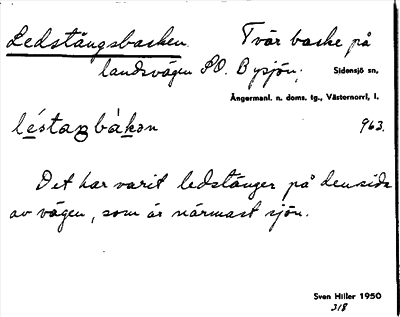 Ledstångsbacken. Tvär backe på
landsvägen SO. Bysjön. Sidensjö sn,
Ångermanl. n. doms. tg., Västernorrl, l.
963.
Det har varit ledstänger på den sida
av vägen, som är närmast sjön.
Sven Hiller 1950
318